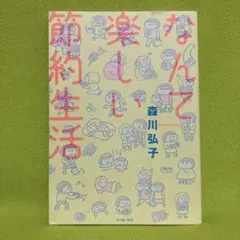 なんて
楽しい
節約生活
森川弘子